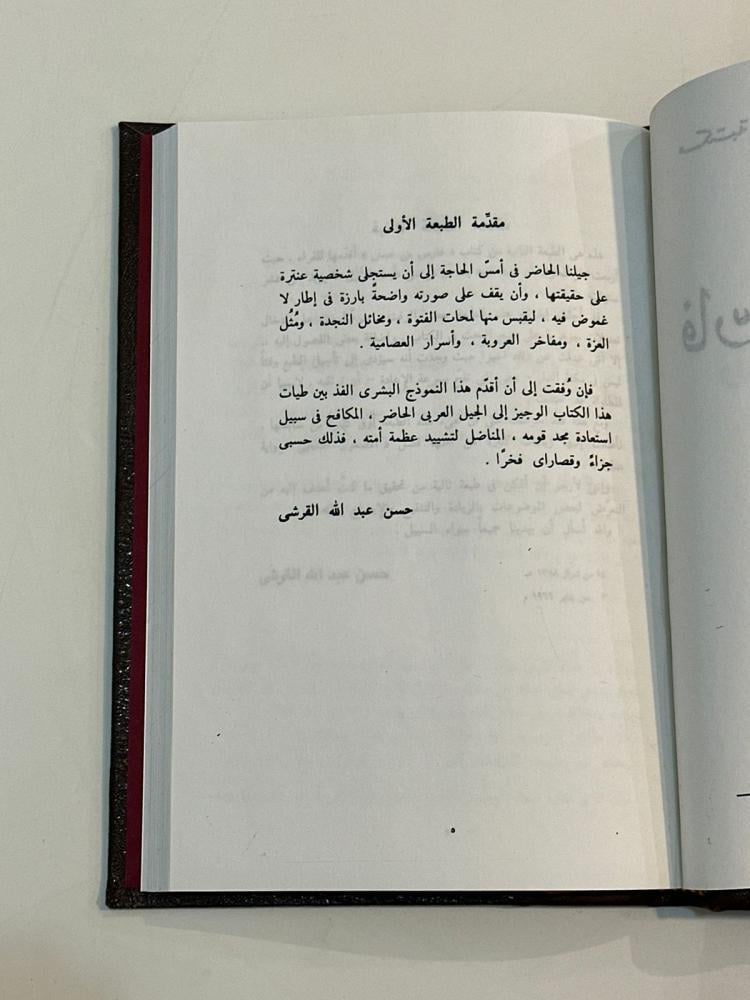 مقدِّمة الطبعة الأولى
جيلنا الحاضر فى أمسّ الحاجة إلى أن يستجلى شخصية عنترة
على حقيقتها ، وأن يقف على صورته واضحةً بارزة فى إطار لا
غموض فيه ، ليقبس منها لمحات الفتوة ، ومخائل النجدة ، ومُثُل
العزة ، ومفاخر العروبة ، وأسرار العصامية .
فإن وُفقت إلى أن أقدّم هذا النموذج البشرى الفذ بين طيات
هذا الكتاب الوجيز إلى الجيل العربى الحاضر ، المكافح فى سبيل
استعادة مجد قومه ، المناضل لتشييد عظمة أمته ، فذلك حسبى
جزاءً وقصاراى فخرًا .
حسن عبد الله القرشى
٥